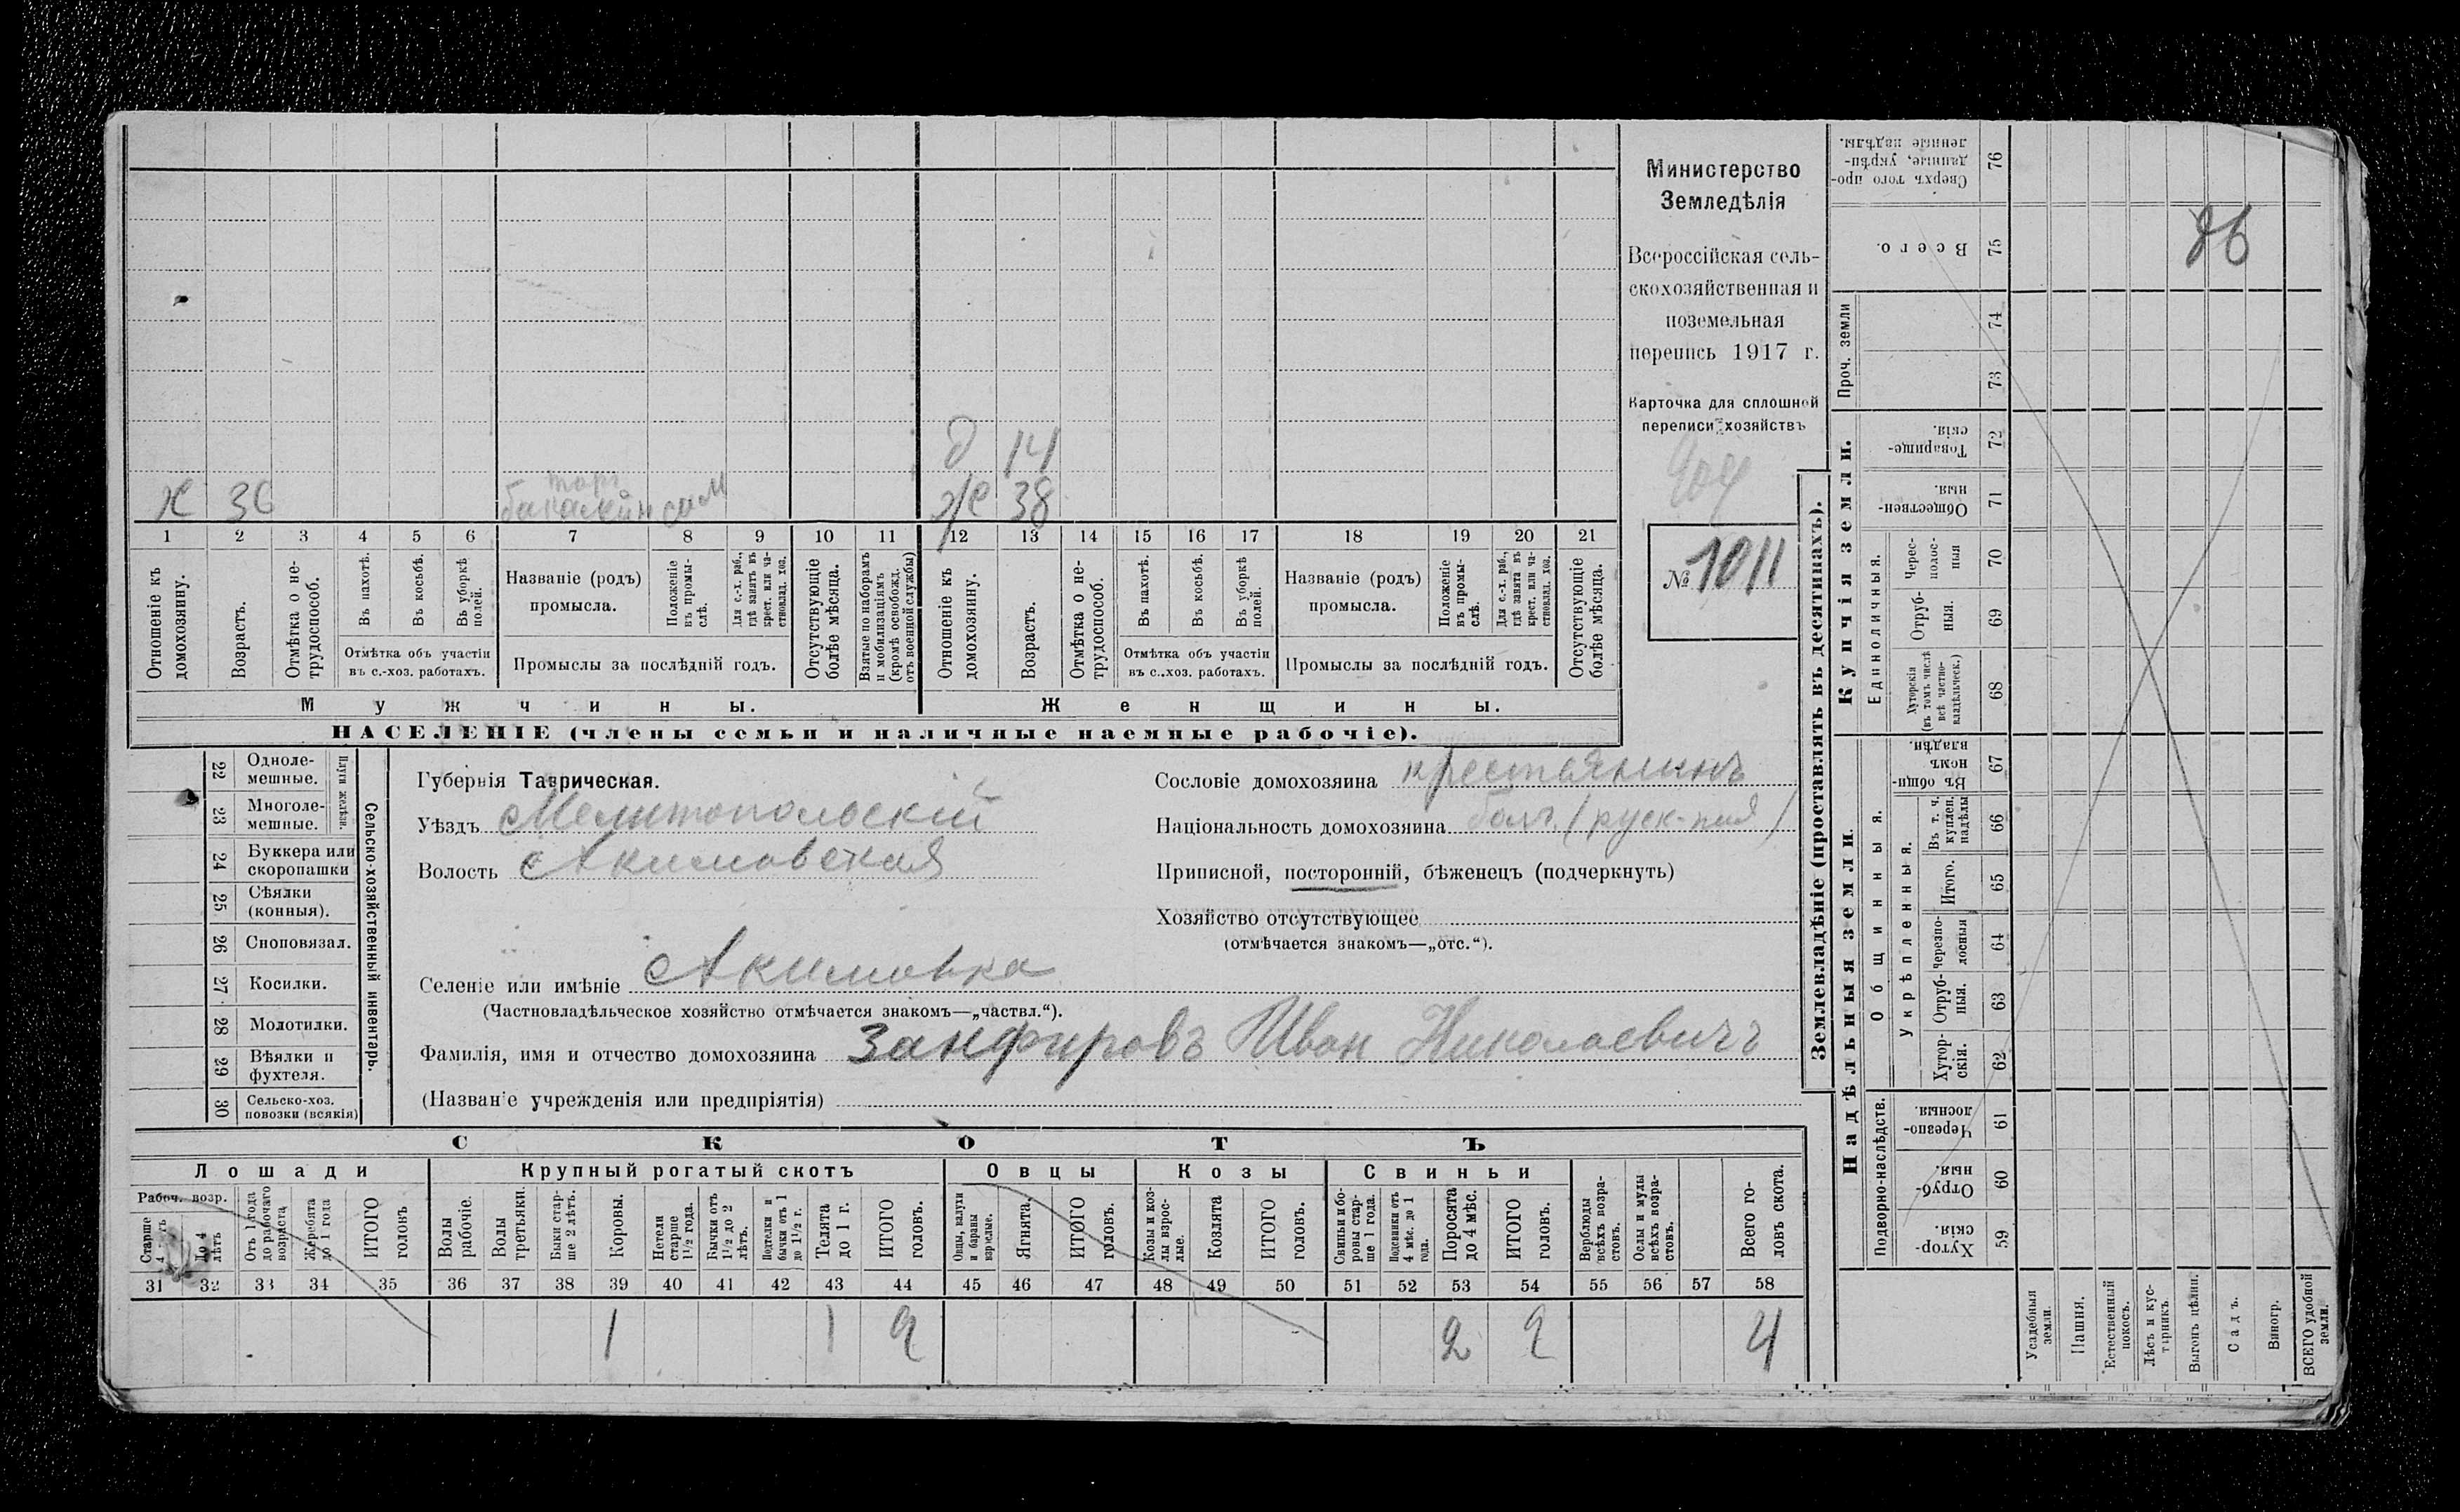 Министерство
Земледѣлія
Всероссійская сель-
скохозяйственная и
поземельная
перепись 1917 г.
Карточка для сплошной
переписи хозяйствъ
№ 1011
д 14
торг
х 36 бакалейн сам ж 38
1 2 3 4 5 6 7 8 9 10 11 12 13 14 15 16 17 18 19 20 21
Отношеніе къ домохозяину.
Возрастъ.
Отмѣтка о не-трудоспособ.
Въ пахотѣ.
Въ косьбѣ.
Въ уборкѣ полей.
Отмѣтка объ участіи
въ с.-хоз. работахъ.
Названіе (родъ)
промысла.
Положеніе въ промы-слѣ.
Для с.-х. раб., гдѣ занятъ въ крест. или ча-стновлад. хоз.
Промыслы за послѣдній годъ.
Отсутствующіе болѣе мѣсяца.
Взятые по наборамъ и мобилизаціямъ (кромѣ освобожд. отъ военной службы)
Отношеніе къ домохозяину.
Возрастъ.
Отмѣтка о не-трудоспособ.
Въ пахотѣ.
Въ косьбѣ.
Въ уборкѣ полей.
Отмѣтка объ участіи
въ с.-хоз. работахъ.
Названіе (родъ)
промысла.
Положеніе въ промы-слѣ.
Для с.-х. раб., гдѣ занята въ крест. или ча-стновлад. хоз.
Промыслы за послѣдній годъ.
Отсутствующіе болѣе мѣсяца.
Мужчины. Женщины.
НАСЕЛЕНІЕ (члены семьи и наличные наемные рабочіе).
Сельско-хозяйственный инвентарь.
Плуги желѣзн.
22 Одноле-мешные.
23 Многоле-мешные.
24 Буккера или скоропашки
25 Сѣялки (конныя).
26 Сноповязал.
27 Косилки.
28 Молотилки.
29 Вѣялки и фухтеля.
30 Сельско-хоз. повозки (всякія)
Губернія Таврическая.
Уѣздъ Мелитопольскій
Волость Акимовская
Сословіе домохозяина крестьянинъ
Національность домохозяина болг. (руск-п
Приписной, посторонній, бѣженецъ (подчеркнуть)
Хозяйство отсутствующее
(отмѣчается знакомъ—„отс.“).
Селеніе или имѣніе Акимовка
(Частновладѣльческое хозяйство отмѣчается знакомъ—„частвл.“).
Фамилія, имя и отчество домохозяина Занфировъ Иван Николаевичъ
(Названіе учрежденія или предпріятія)
СКОТЪ
Лошади Крупный рогатый скотъ Овцы Козы Свиньи
Рабоч. возр.
Старше 4 лѣтъ
До 4 лѣтъ
Отъ 1 года до рабочаго возраста
Жеребята до 1 года
ИТОГО головъ
Волы рабочіе.
Волы третьяки.
Быки стар-ше 2 лѣтъ.
Коровы.
Нетели старше 1 1/2 года.
Бычки отъ 1 1/2 до 2 лѣтъ.
Подтелки и бычки отъ 1 до 1 1/2 г.
Телята до 1 г.
ИТОГО головъ.
Овцы, валухи и бараны взрослые.
Ягнята.
ИТОГО головъ.
Козы и коз-лы взрос-лые.
Козлята
ИТОГО головъ.
Свиньи и бо-ровы стар-ше 1 года.
Подсвинки отъ 4 мѣс. до 1 года.
Поросята до 4 мѣс.
ИТОГО головъ.
Верблюды всѣхъ возра-стовъ.
Ослы и мулы всѣхъ возра-стовъ.
Всего го-ловъ скота.
31 32 33 34 35 36 37 38 39 40 41 42 43 44 45 46 47 48 49 50 51 52 53 54 55 56 57 58
1 1 2 2 2 4
Землевладѣніе (проставлять въ десятинахъ).
Купчія земли.
Проч. земли
Единоличныя.
Надѣльныя земли.
Общинныя.
Укрѣпленныя.
Подворно-наслѣдств.
76 Сверхъ того про-данные, укрѣп-ленные надѣлы.
75 Всего.
74
73
72 Товарище-скія.
71 Общественныя.
70 Черес-полос-ныя
69 Отруб-ныя.
68 Хуторскія (въ томъ числѣ всѣ частно-владѣльческ.)
67 Въ общи-номъ владѣн.
66 Въ т. ч. куплен. надѣлы
65 Итого.
64 Черезпо-лосныя
63 Отруб-ныя.
62 Хутор-скія.
61 Черезпо-лосныя.
60 Отруб-ныя.
59 Хутор-скія.
Усадебныя земли.
Пашня.
Естественный покосъ.
Лѣсъ и кус-тарникъ.
Выгонъ цѣлин.
Садъ.
Виногр.
ВСЕГО удобной земли.